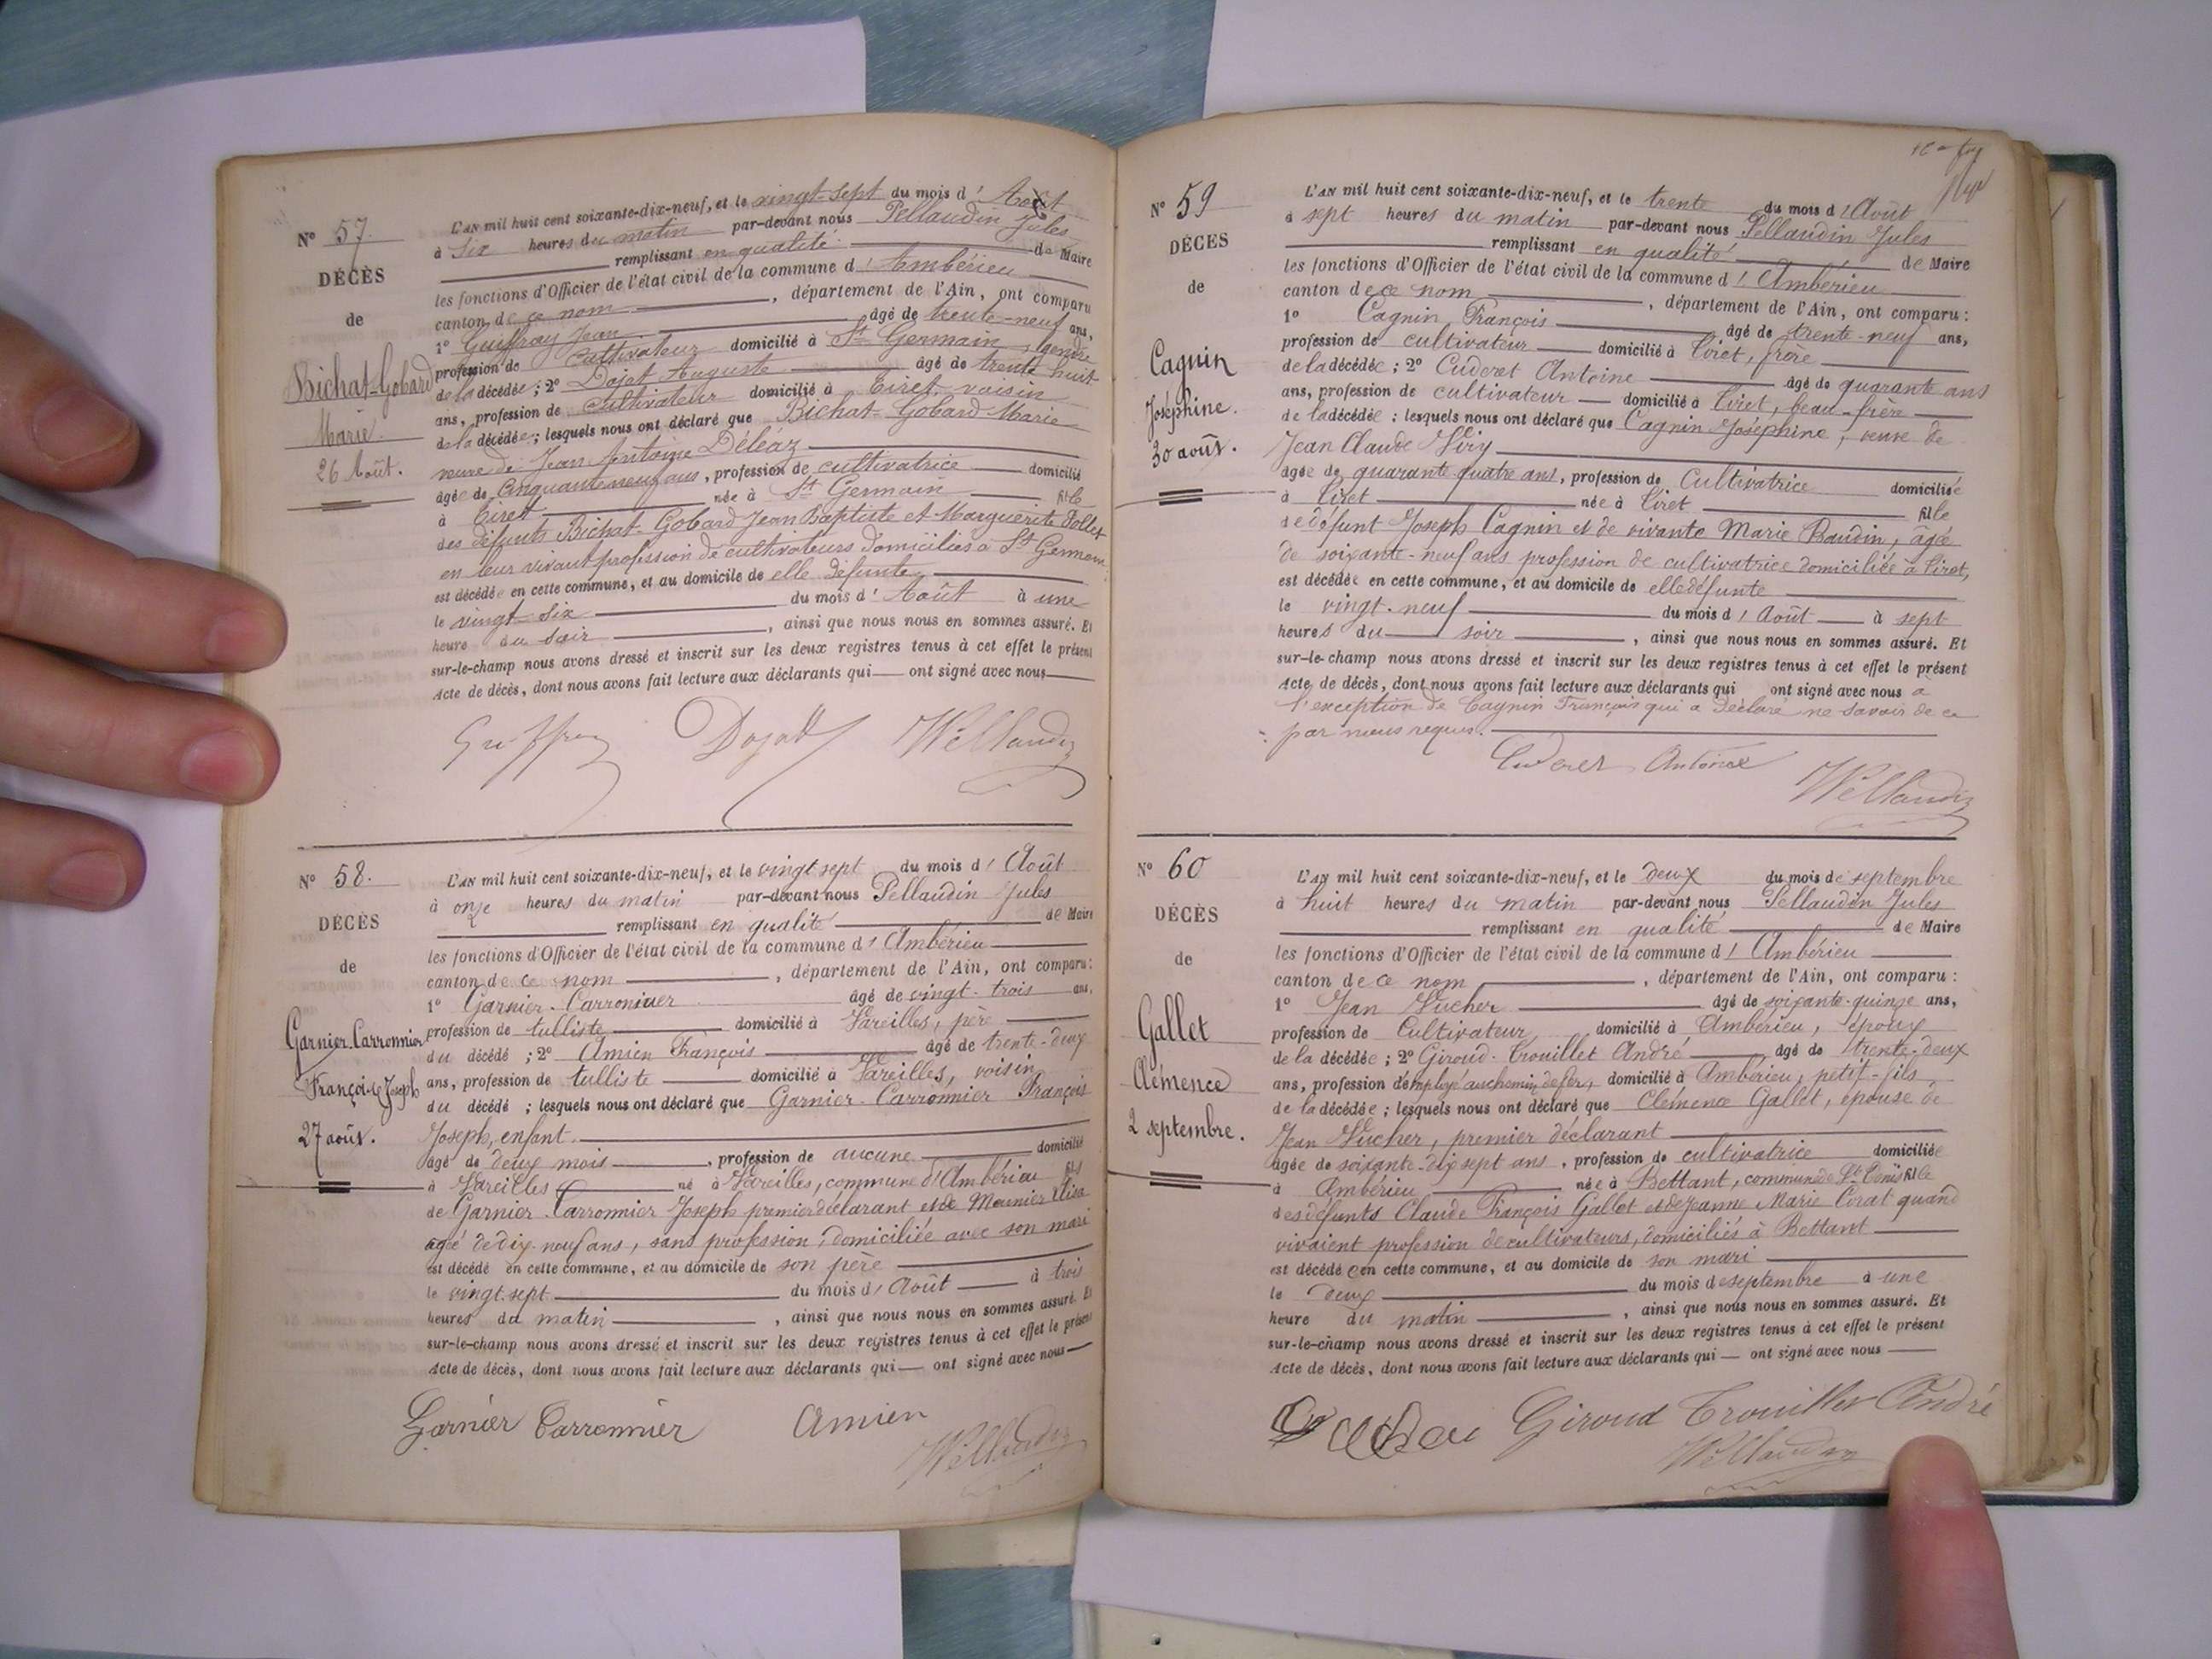 N° 57.
DÉCÈS
de
Bichat-Gobard
Marie.
26 Août.
L'AN mil huit cent soixante-dix-neuf, et le vingt-sept du mois d'Août
à six heures du matin par-devant nous Pellaudin Jules
remplissant en qualité de Maire
les fonctions d'Officier de l'état civil de la commune d'Ambérieu
canton de ce nom, département de l'Ain, ont comparu
1° Guiffray Jean âgé de trente-neuf ans,
profession de cultivateur domicilié à St Germain, gendre
de la décédée; 2° Dojat Auguste âgé de trente huit
ans, profession de cultivateur domicilié à Tiret, voisin
de la décédée; lesquels nous ont déclaré que Bichat-Gobard Marie
veuve de Jean Antoine Déléaz
âgée de cinquante neuf ans, profession de cultivatrice domicilié
à Tiret née à St Germain fille
des défunts Bichat-Gobard Jean Baptiste et Marguerite Pollet
en leur vivant profession de cultivateurs domiciliés à St Germain
est décédée en cette commune, et au domicile de elle défunte
le vingt six du mois d'Août à une
heure du soir, ainsi que nous nous en sommes assuré. Et
sur-le-champ nous avons dressé et inscrit sur les deux registres tenus à cet effet le présent
Acte de décès, dont nous avons fait lecture aux déclarants qui ont signé avec nous
Guiffray Dojat Pellaudin
N° 58.
DÉCÈS
de
Garnier-Carronnier
François Joseph
27 août.
L'AN mil huit cent soixante-dix-neuf, et le vingt sept du mois d'Août
à onze heures du matin par-devant nous Pellaudin Jules
remplissant en qualité de Maire
les fonctions d'Officier de l'état civil de la commune d'Ambérieu
canton de ce nom, département de l'Ain, ont comparu:
1° Garnier-Carronnier âgé de vingt-trois ans,
profession de tulliste domicilié à Vareilles, père
du décédé; 2° Amien François âgé de trente-deux
ans, profession de tulliste domicilié à Vareilles, voisin
du décédé; lesquels nous ont déclaré que Garnier-Carronnier François
Joseph, enfant
âgé de deux mois, profession de aucune domicilié
à Vareilles né à Vareilles, commune d'Ambérieu fils
de Garnier-Carronnier Joseph premier déclarant et de Meunier Elisa
agée de dix-neuf ans, sans profession, domiciliée avec son mari
est décédé en cette commune, et au domicile de son père
le vingt sept du mois d'Août à trois
heures du matin, ainsi que nous nous en sommes assuré. Et
sur-le-champ nous avons dressé et inscrit sur les deux registres tenus à cet effet le présent
Acte de décès, dont nous avons fait lecture aux déclarants qui ont signé avec nous
Garnier Carronnier Amien Pellaudin
N° 59
DÉCÈS
de
Cagnin
Joséphine.
30 août.
L'AN mil huit cent soixante-dix-neuf, et le trente du mois d'Août
à sept heures du matin par-devant nous Pellaudin Jules
remplissant en qualité de Maire
les fonctions d'Officier de l'état civil de la commune d'Ambérieu
canton de ce nom, département de l'Ain, ont comparu:
1° Cagnin François âgé de trente-neuf ans,
profession de cultivateur domicilié à Tiret, frère
de la décédée; 2° Cuderet Antoine âgé de quarante ans
ans, profession de cultivateur domicilié à Tiret, beau-frère
de la décédée: lesquels nous ont déclaré que Cagnin Joséphine, veuve de
Jean Claude Viry
âgée de quarante quatre ans, profession de Cultivatrice domiciliée
à Tiret née à Tiret fille
de défunt Joseph Cagnin et de vivante Marie Baudin, âgée
de soixante-neuf ans profession de cultivatrice domiciliée à Tiret,
est décédée en cette commune, et au domicile de elle défunte
le vingt-neuf du mois d'Août à sept
heures du soir, ainsi que nous nous en sommes assuré. Et
sur-le-champ nous avons dressé et inscrit sur les deux registres tenus à cet effet le présent
Acte de décès, dont nous avons fait lecture aux déclarants qui ont signé avec nous a
l'exception de Cagnin François qui a déclaré ne savoir de ce
par nous requis.
Cuderet Antoine Pellaudin
N° 60
DÉCÈS
de
Gallet
Clémence
2 septembre.
L'AN mil huit cent soixante-dix-neuf, et le deux du mois de septembre
à huit heures du matin par-devant nous Pellaudin Jules
remplissant en qualité de Maire
les fonctions d'Officier de l'état civil de la commune d'Ambérieu
canton de ce nom, département de l'Ain, ont comparu:
1° Jean Vucher âgé de soixante-quinze ans,
profession de Cultivateur domicilié à Ambérieu, époux
de la décédée; 2° Giroud-Trouillet André âgé de trente-deux
ans, profession d'employé au chemin de fer, domicilié à Ambérieu, petit-fils
de la décédée; lesquels nous ont déclaré que Clémence Gallet, épouse de
Jean Vucher, premier déclarant
âgée de soixante-dix sept ans, profession de cultivatrice domiciliée
à Ambérieu née à Bettant, commune de St Denis fille
des défunts Claude François Gallet et de Jeanne Marie Corat quand
vivaient profession de cultivateurs, domiciliés à Bettant
est décédée en cette commune, et au domicile de son mari
le deux du mois de septembre à une
heure du matin, ainsi que nous nous en sommes assuré. Et
sur-le-champ nous avons dressé et inscrit sur les deux registres tenus à cet effet le présent
Acte de décès, dont nous avons fait lecture aux déclarants qui ont signé avec nous
Giroud Trouillet André
Pellaudin